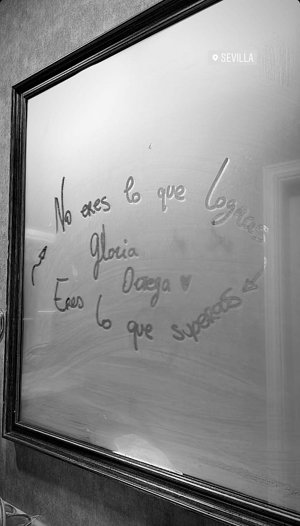 SEVILLA
No eres lo que logras
Gloria
Ortega ♥
Eres lo que superas